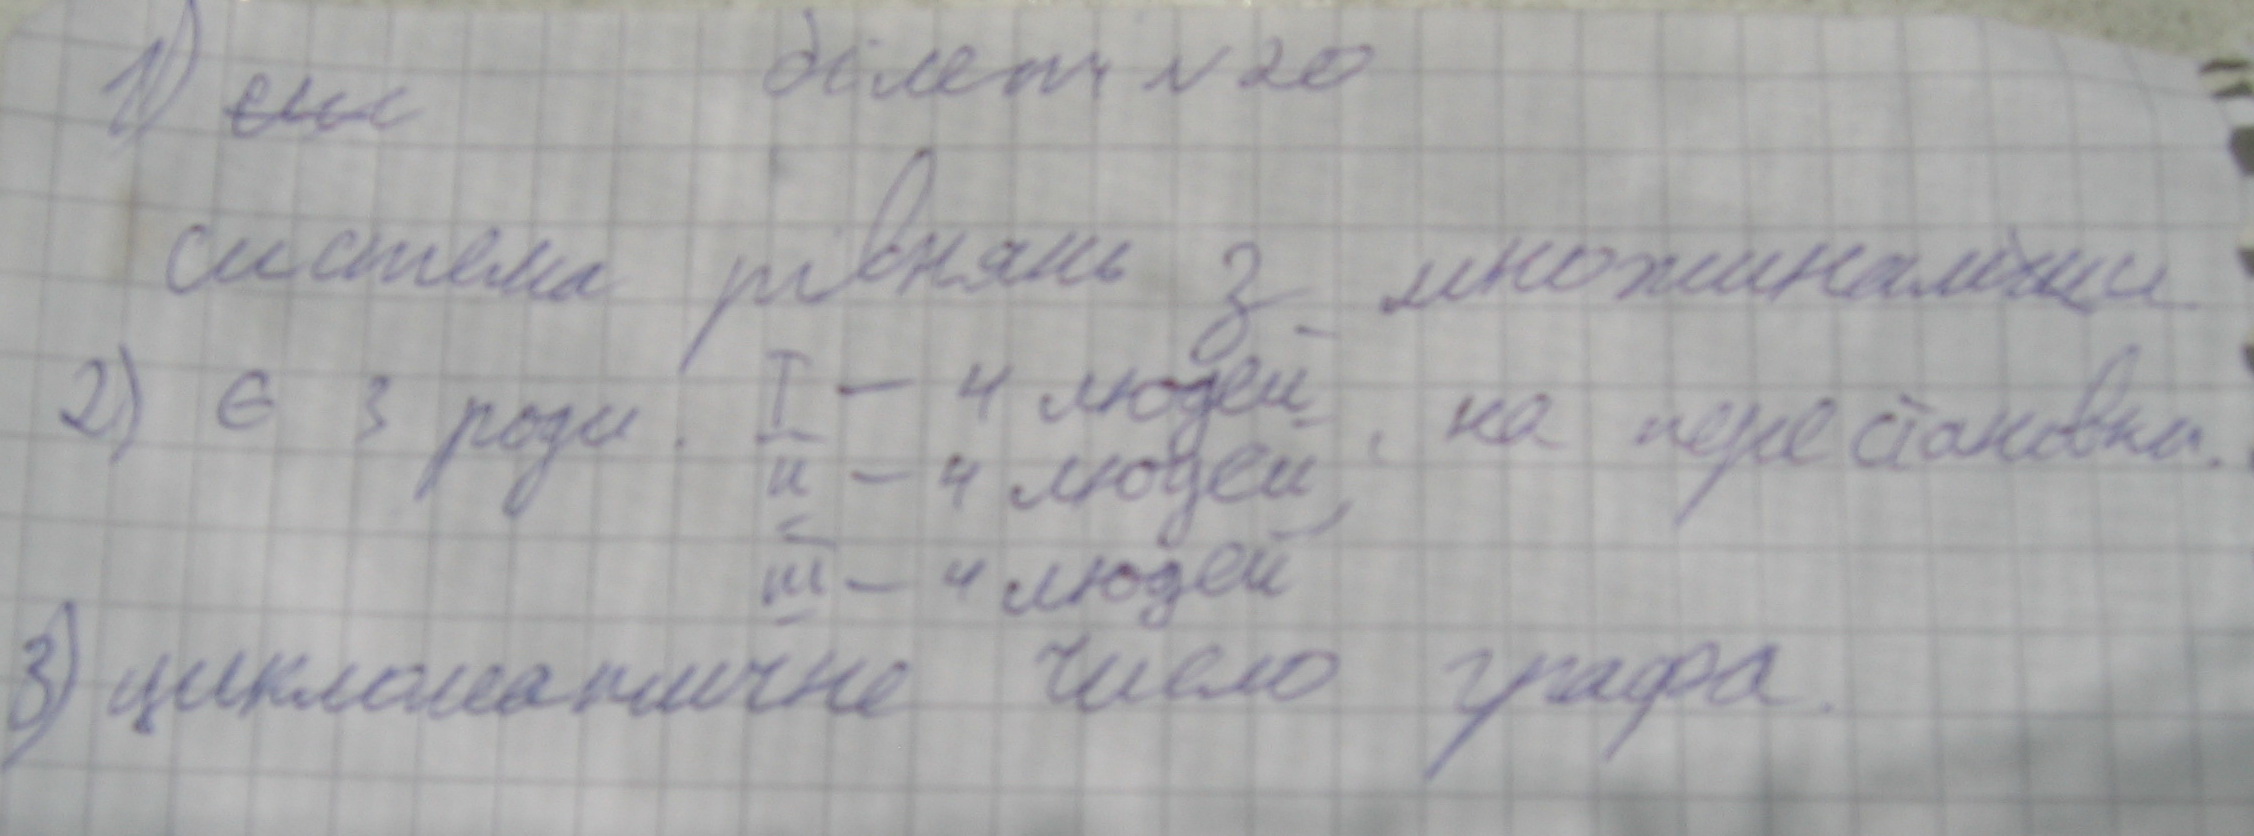 білет №20
1)
система рівнянь з множинами
2) є 3 роди. I – 4 людей, на перестановки.
II – 4 людей,
III – 4 людей
3) цикломатичне число графа.